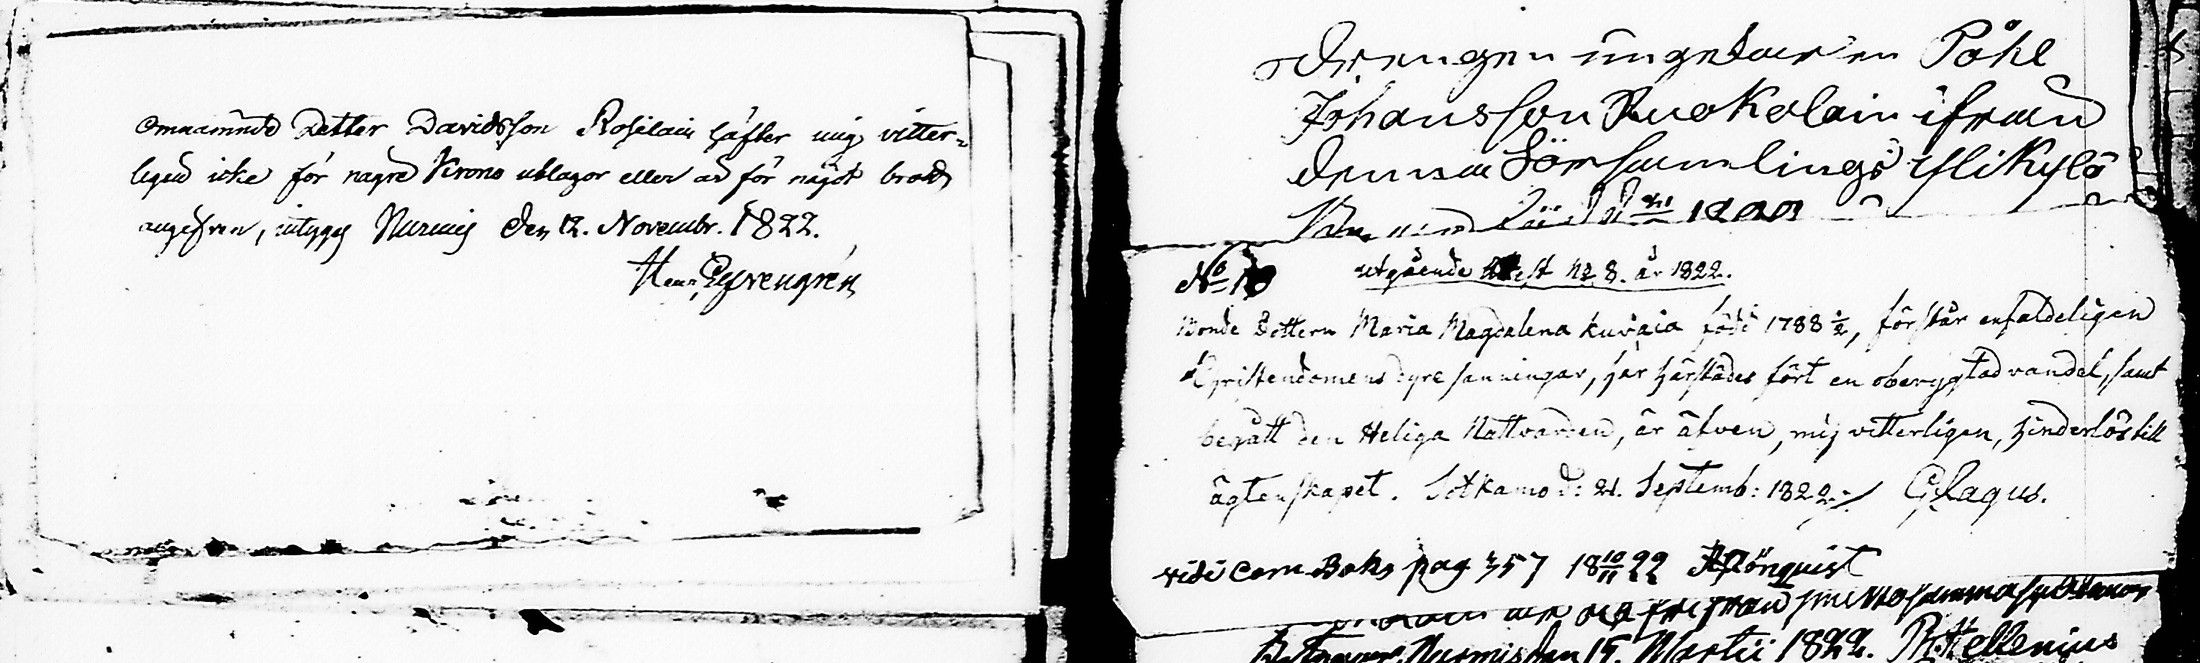 Omnämnde Petter Davidsson Rosilain häfter mig vitter-
ligen icke för några Krono utlagor eller är för något brott
angifven, intygas Nurmis den 12. Novembr. 1822.
Drengen ungekarlen Påhl
Johansson Ruokolain ifrån
denna Församlings Ylikylä
No 10 utgående Attest No 8. år 1822.
Bonde Dottern Maria Magdalena Kuvaia född 1788 1/2, förstår enfaldeligen
Christendomens dyre sanningar, har härstädes fört en oberygtad vandel, samt
begått den Heliga Nattvarden, är äfven, mig vitterligen, hinderlös till
ägtenskapet. Sotkamo d: 21. Septemb: 1822. G. Lagus.
vide Com. Boks pag 357 18 10/11 22 Lönquist
Nurmis den 15. Martii 1822. Hellenius